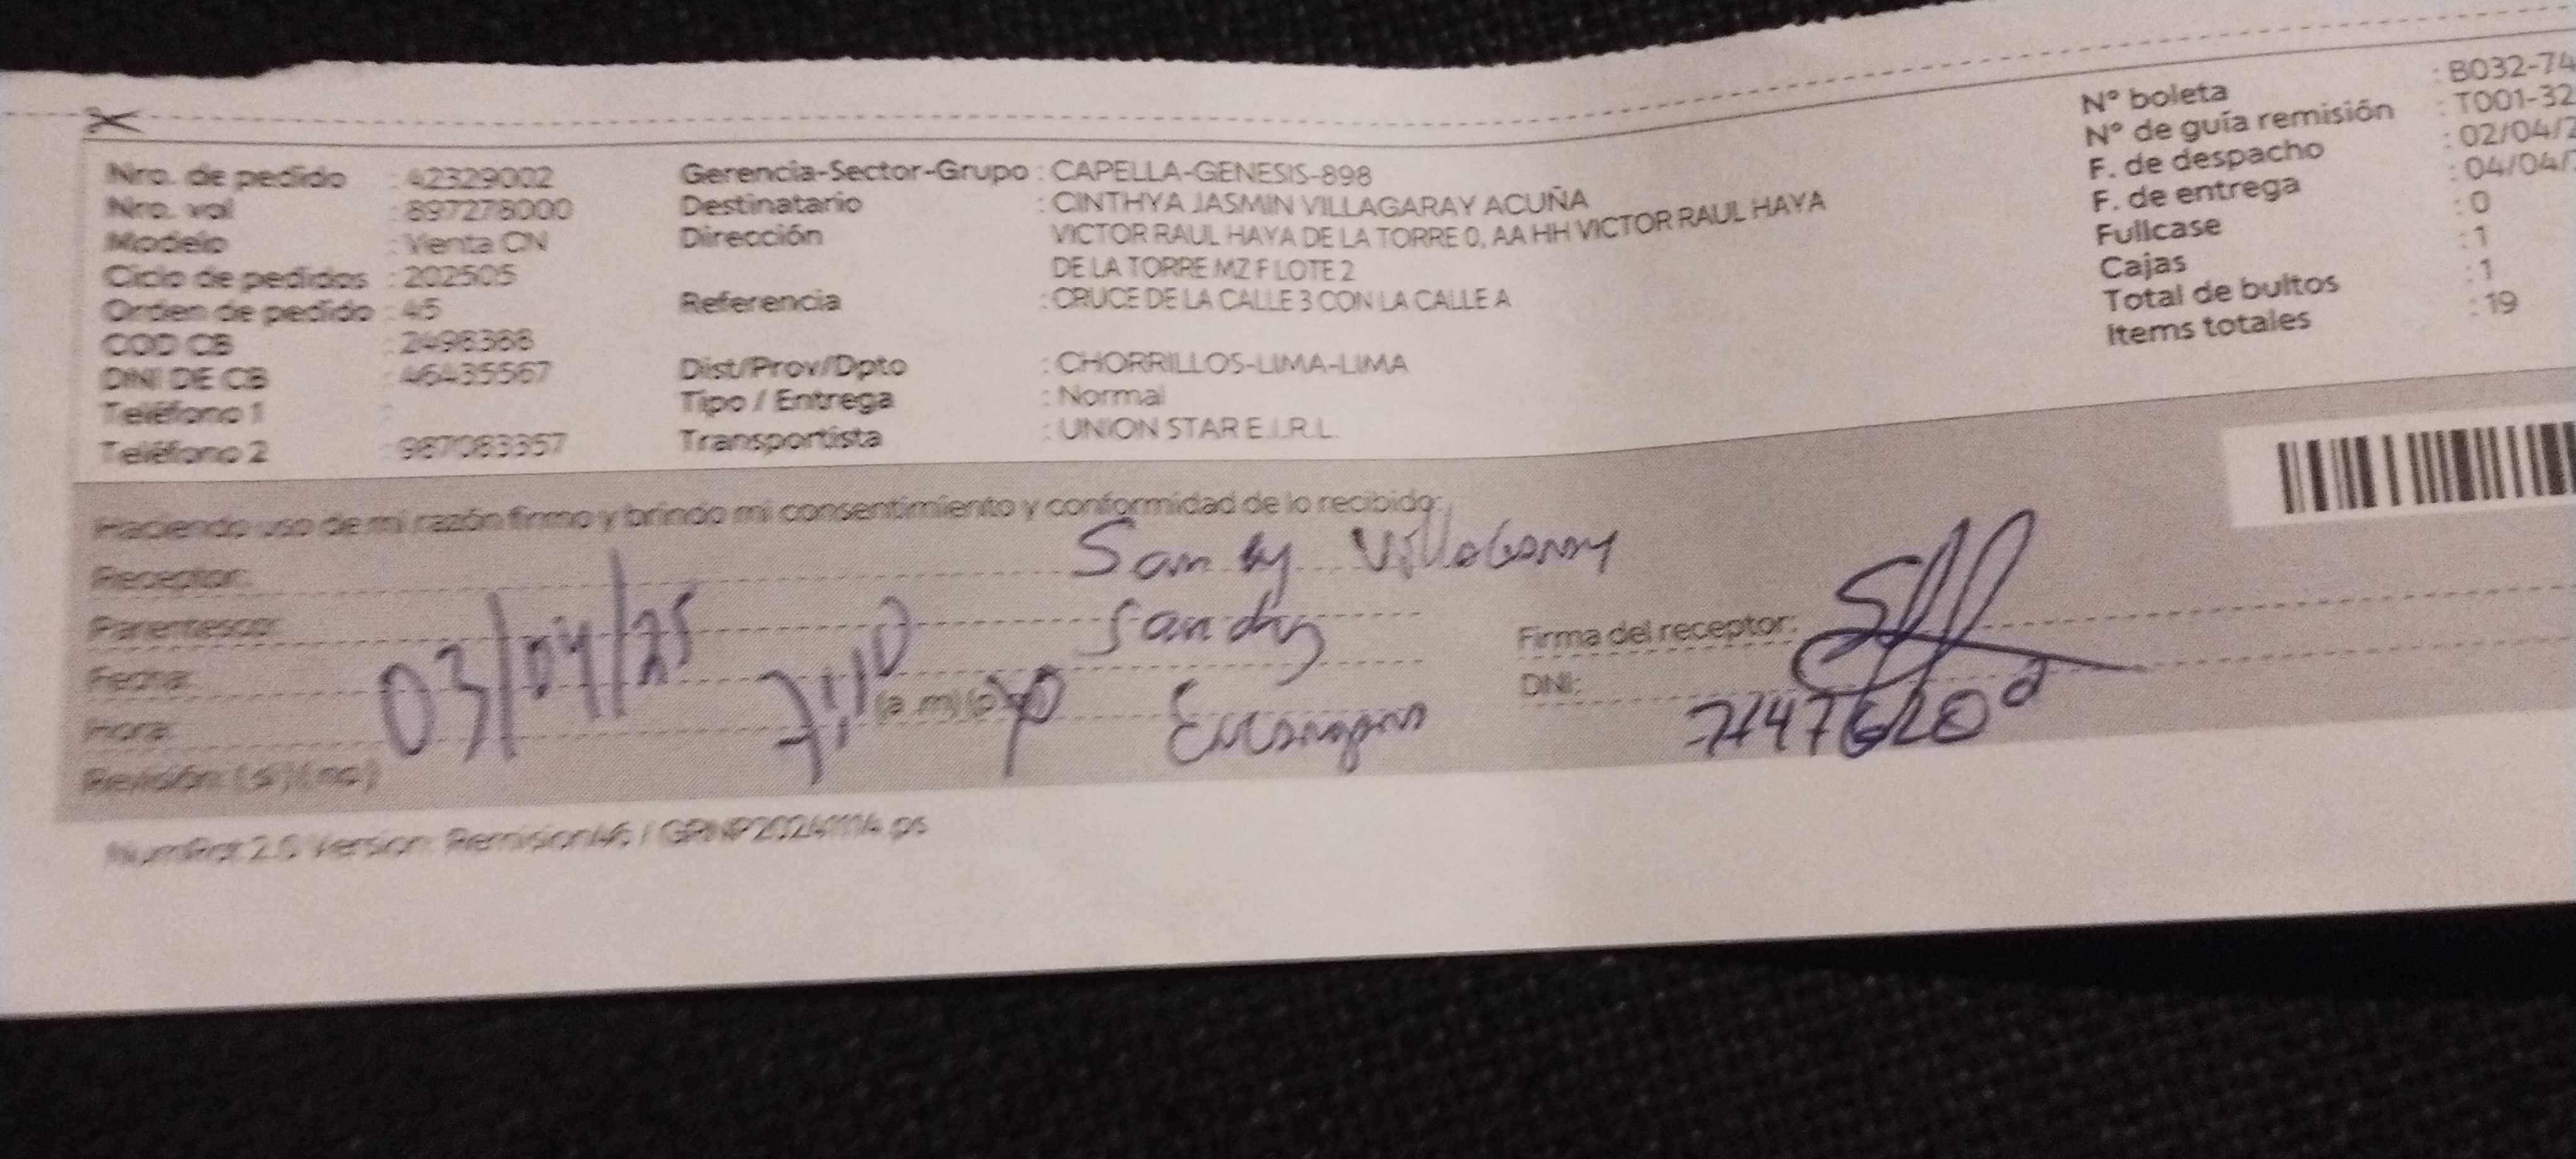 Nro. de pedido : 42329002
Nro. vol : 897278000
Modelo : Venta CN
Ciclo de pedidos : 202505
Orden de pedido : 45
COD CB : 2498368
DNI DE CB : 46435567
Teléfono 1 :
Teléfono 2 : 987083357
Gerencia-Sector-Grupo : CAPELLA-GENESIS-898
Destinatario : CINTHYA JASMIN VILLAGARAY ACUÑA
Dirección VICTOR RAUL HAYA DE LA TORRE 0, AA HH VICTOR RAUL HAYA
DE LA TORRE MZ F LOTE 2
Referencia : CRUCE DE LA CALLE 3 CON LA CALLE A
Dist/Prov/Dpto : CHORRILLOS-LIMA-LIMA
Tipo / Entrega : Normal
Transportista : UNION STAR E.I.R.L.
N° boleta : B032-74
N° de guía remisión : T001-32
F. de despacho : 02/04/2
F. de entrega : 04/04/
Fullcase : 0
Cajas : 1
Total de bultos : 1
Items totales : 19
Haciendo uso de mi razón firmo y brindo mi consentimiento y conformidad de lo recibido:
Receptor: Sandy Villagaray
Parentesco: Sandy
Fecha: 03/04/25
Hora: (a.m)
Revisión: (si) (no)
Firma del receptor:
DNI: